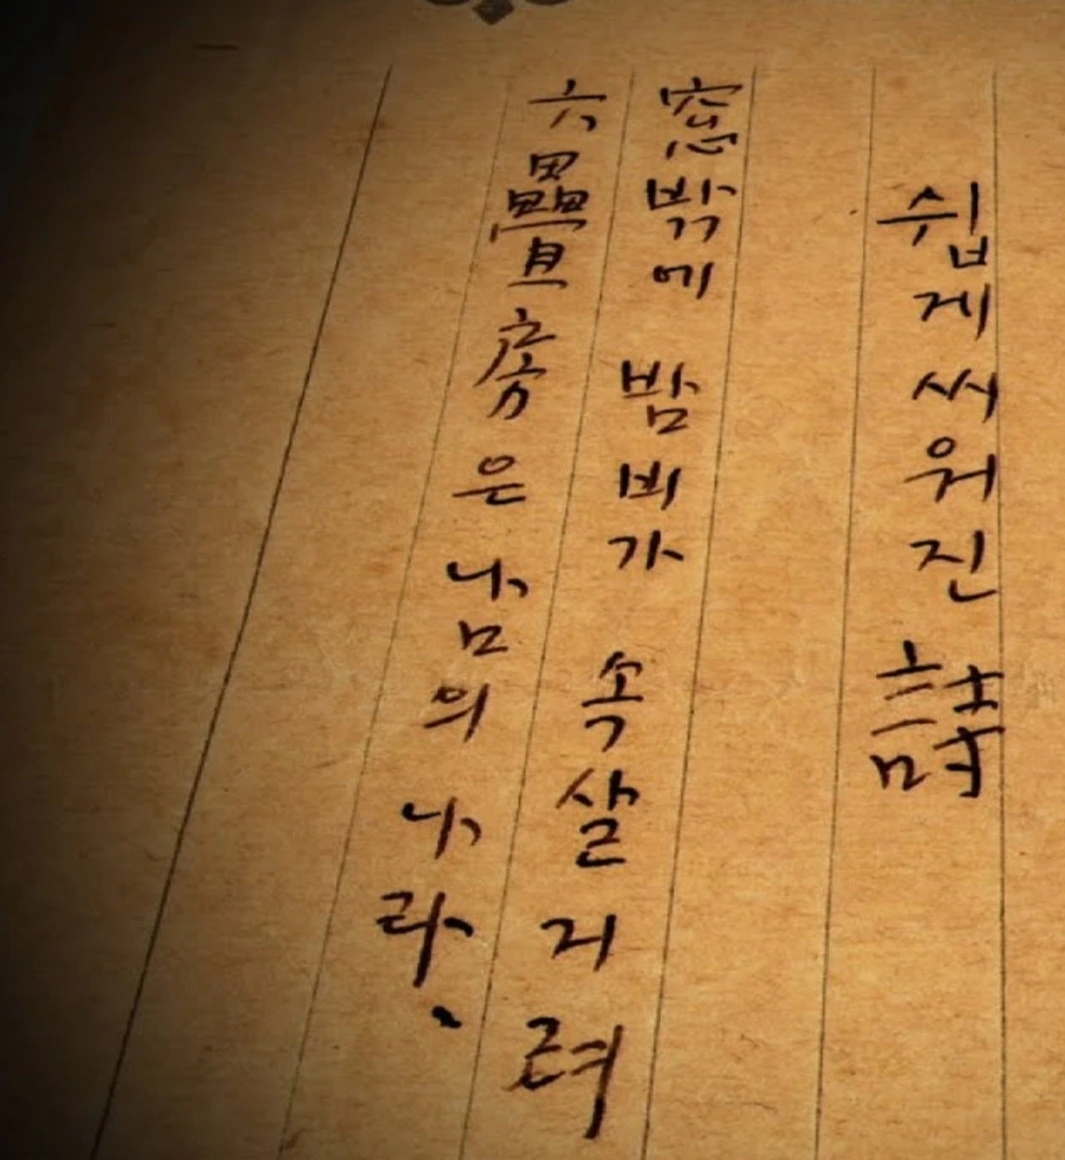 쉽게 씨워진 詩
窓밖에 밤비가 속살거려
六疊房은 남의 나라、